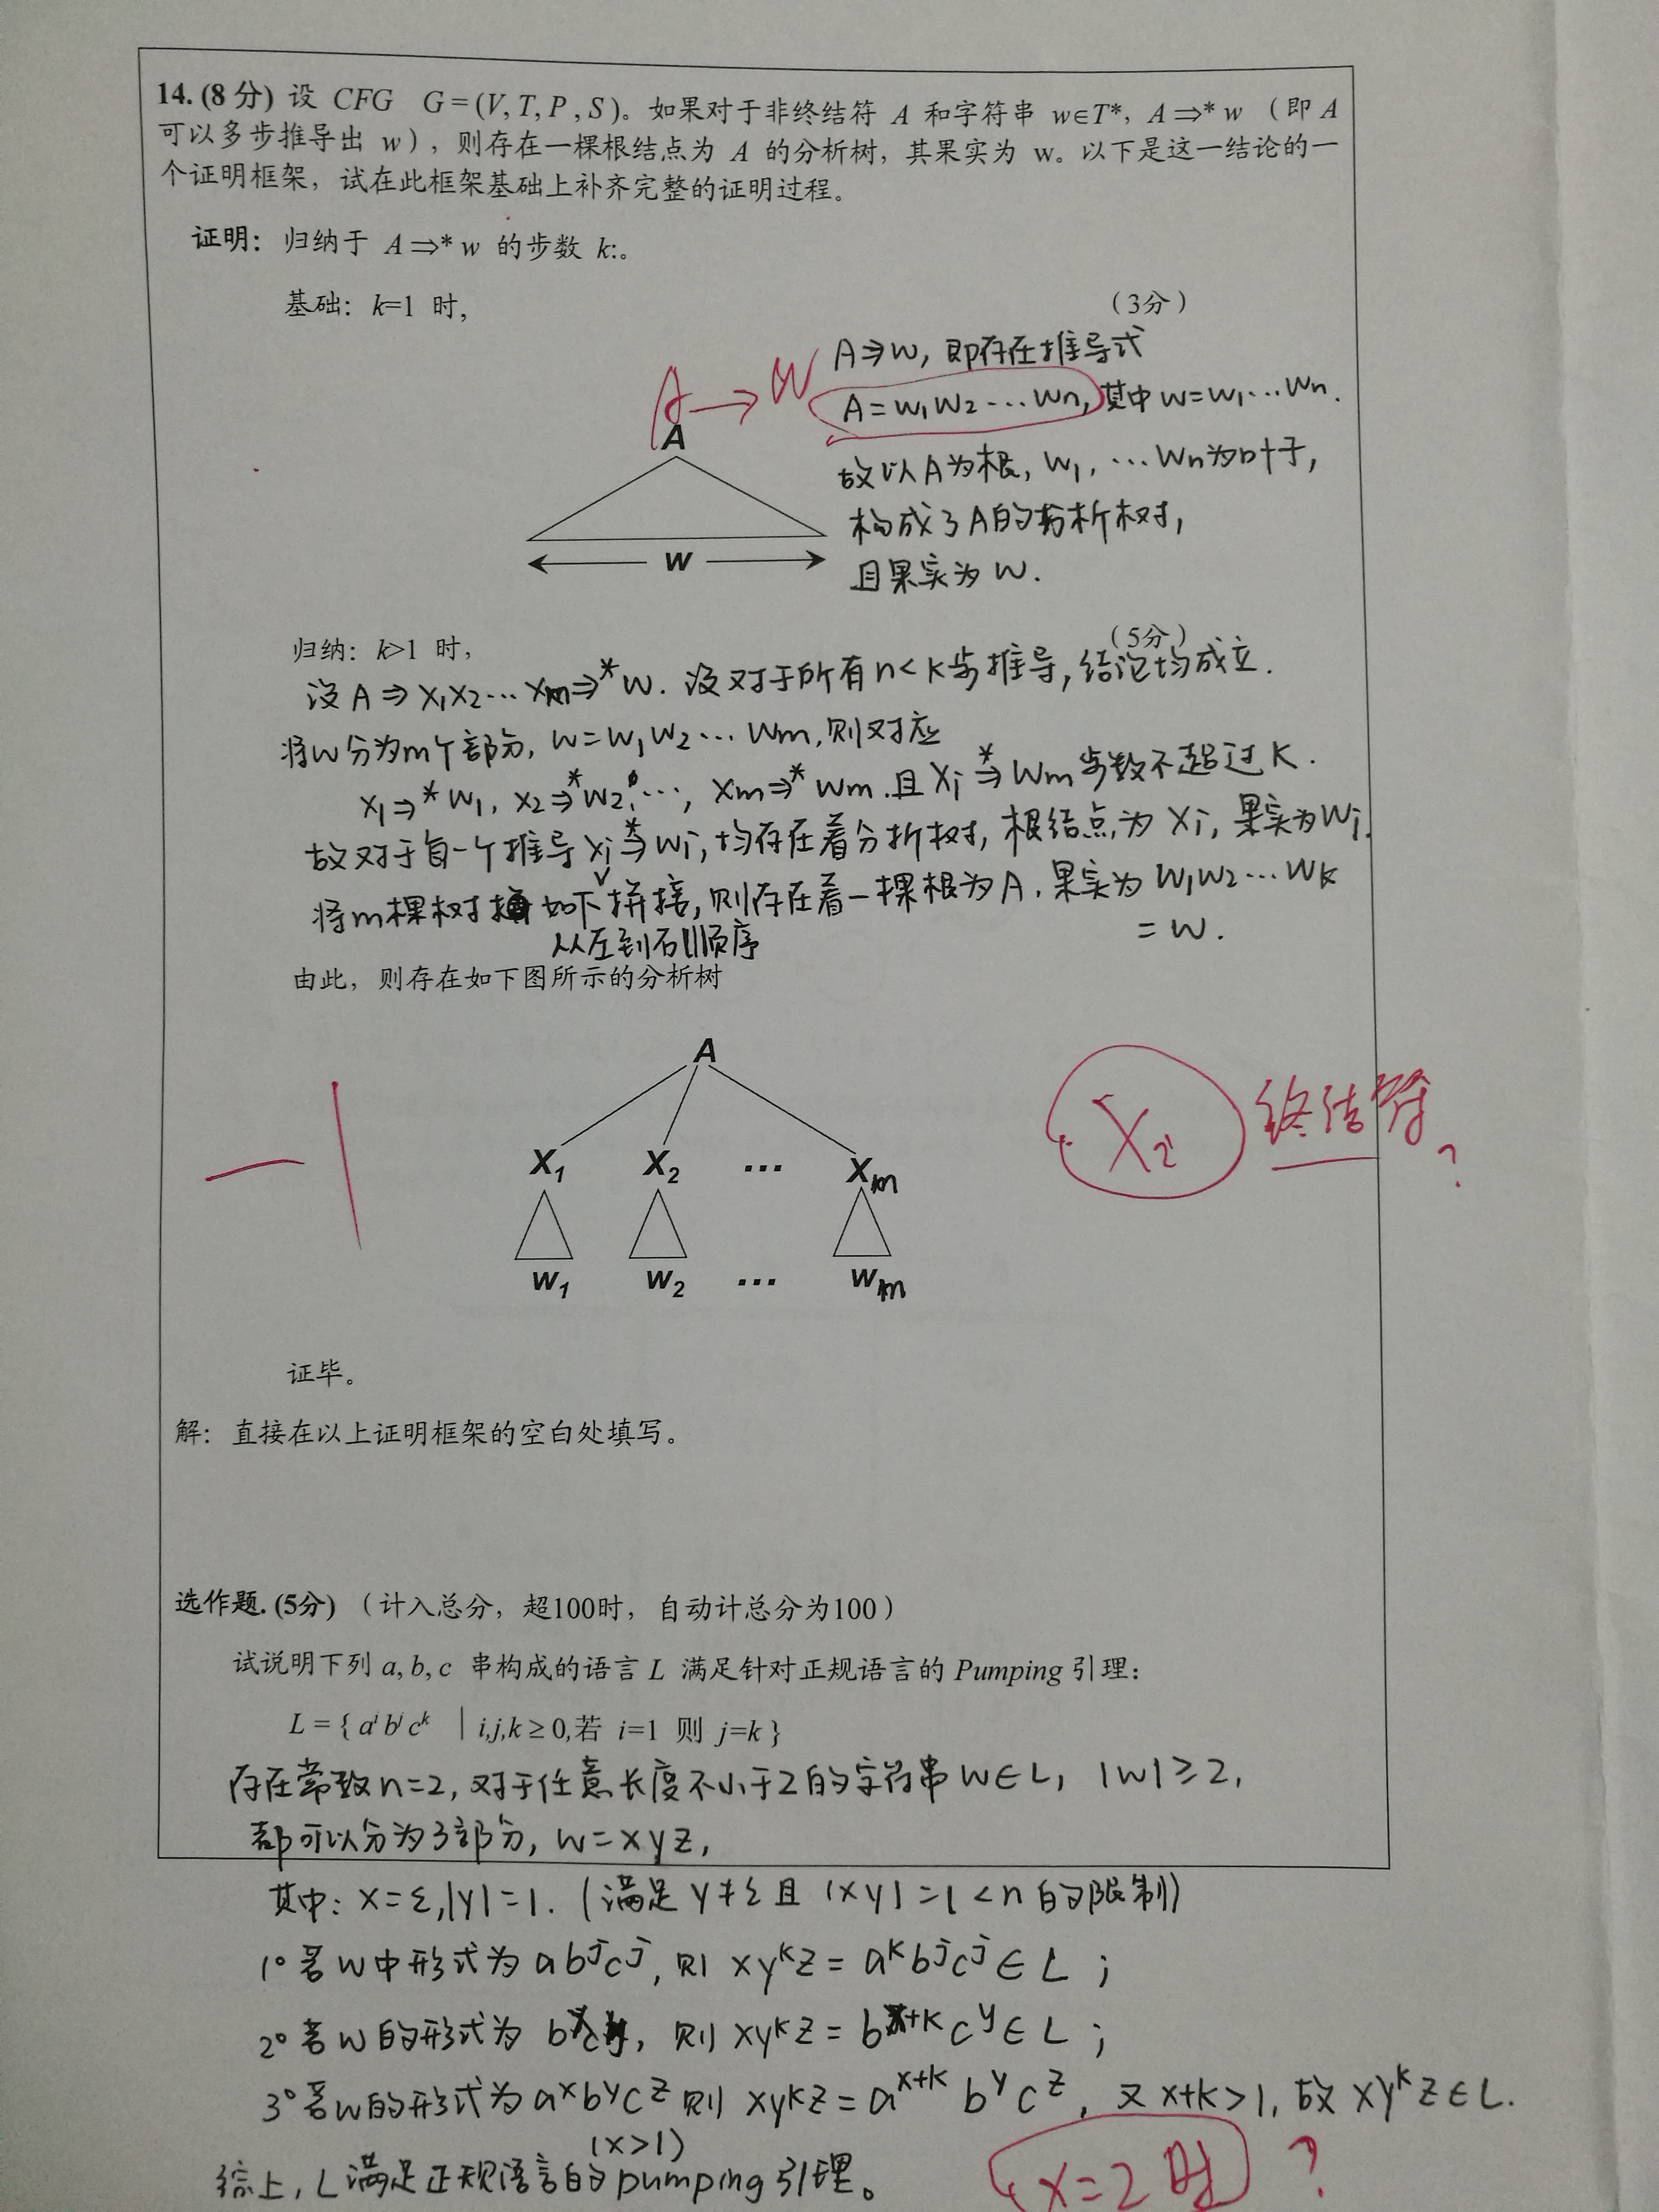 14. (8 分) 设 CFG G=(V, T, P , S)。如果对于非终结符 A 和字符串 w∈T*, A⇒* w （即 A
可以多步推导出 w），则存在一棵根结点为 A 的分析树，其果实为 w。以下是这一结论的一
个证明框架，试在此框架基础上补齐完整的证明过程。
证明：归纳于 A⇒* w 的步数 k:。
基础：k=1 时，
（3分）
A⇒w, 即存在推导式
A → W
A = w₁w₂…wn, 其中 w=w₁…wn.
A
故以A为根, w₁, …wn为叶子,
构成了A的分析树,
W
且果实为 w.
归纳：k>1 时，
（5分）
设 A ⇒ x₁x₂…xm⇒*w. 设对于所有 n<k步推导, 结论均成立.
将w分为m个部分, w=w₁w₂…wm, 则对应
x₁⇒*w₁, x₂⇒*w₂, …, xm⇒*wm. 且 xi⇒*wm 步数不超过k.
故对于每一个推导 xi⇒*wi, 均存在着分析树, 根结点为 xi, 果实为wi.
将m棵树如下拼接, 则存在着一棵根为A, 果实为 w₁w₂…wk
从左到右顺序
=w.
由此，则存在如下图所示的分析树
A
X₁ X₂ … Xm
X₂ 终结符?
w₁ w₂ … wm
-1
证毕。
解：直接在以上证明框架的空白处填写。
选作题. (5分) （计入总分，超100时，自动计总分为100）
试说明下列 a, b, c 串构成的语言 L 满足针对正规语言的 Pumping 引理：
L = { aⁱ bʲ cᵏ | i,j,k ≥ 0,若 i=1 则 j=k }
存在常数n=2, 对于任意长度不小于2的字符串 w∈L, |w|≥2,
都可以分为3部分, w=xyz,
其中: x=ε, |y|=1. (满足 y≠ε 且 |xy|=1<n 的限制)
1° 若w中形式为 abʲcʲ, 则 xyᵏz = aᵏbʲcʲ∈L ;
2° 若w的形式为 bˣcʸ, 则 xyᵏz = bˣ⁺ᵏcʸ∈L ;
3° 若w的形式为 aˣbʸcᶻ 则 xyᵏz = aˣ⁺ᵏ bʸ cᶻ, 又 x+k>1, 故 xyᵏz∈L.
(x>1)
综上, L满足正规语言的pumping引理。
x=2时 ?